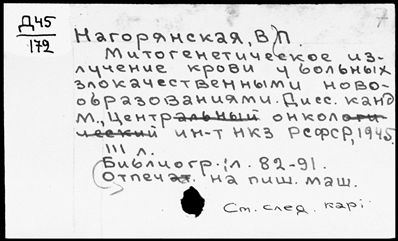 Д45
172
7
Нагорянская, В)П.
Митогенетическое из-
лучение крови у больных
злокачественными ново-
образованиями. Дисс. канд
М., Центральный онкологи-
ческий ин-т НКЗ РСФСР, 1945.
III л.
Библиогр.: л. 82-91.
Отпечат. на пиш. маш.
Ст. след. карт.